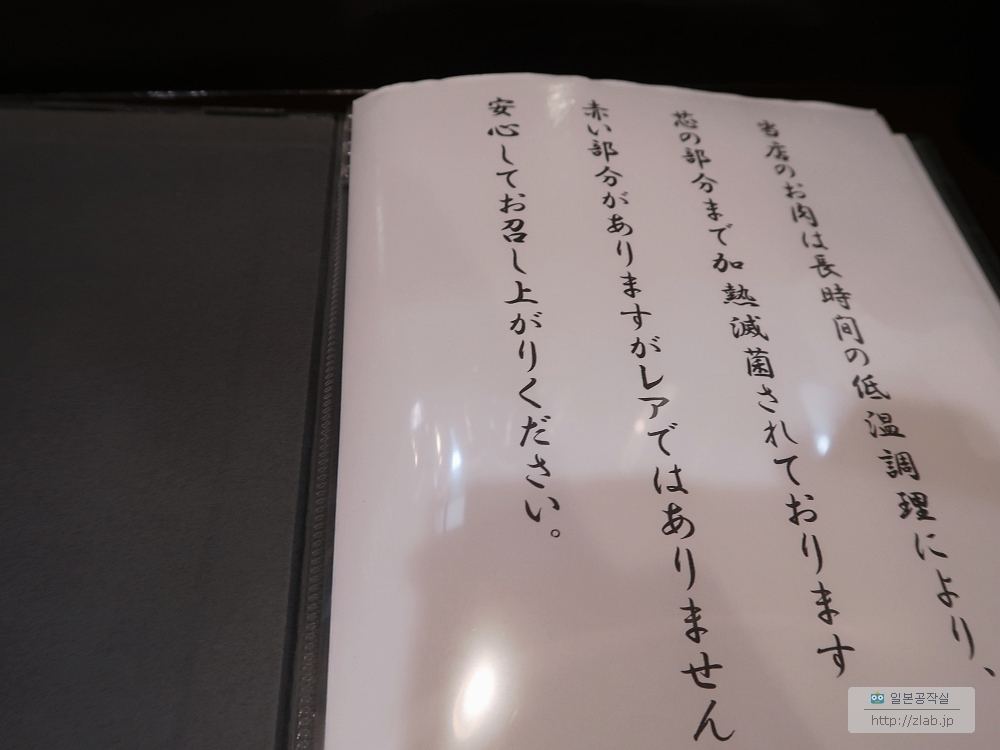 当店のお肉は長時間の低温調理により、
芯の部分まで加熱滅菌されております
赤い部分がありますがレアではありません
安心してお召し上がりください。
일본공작실
http://zlab.jp